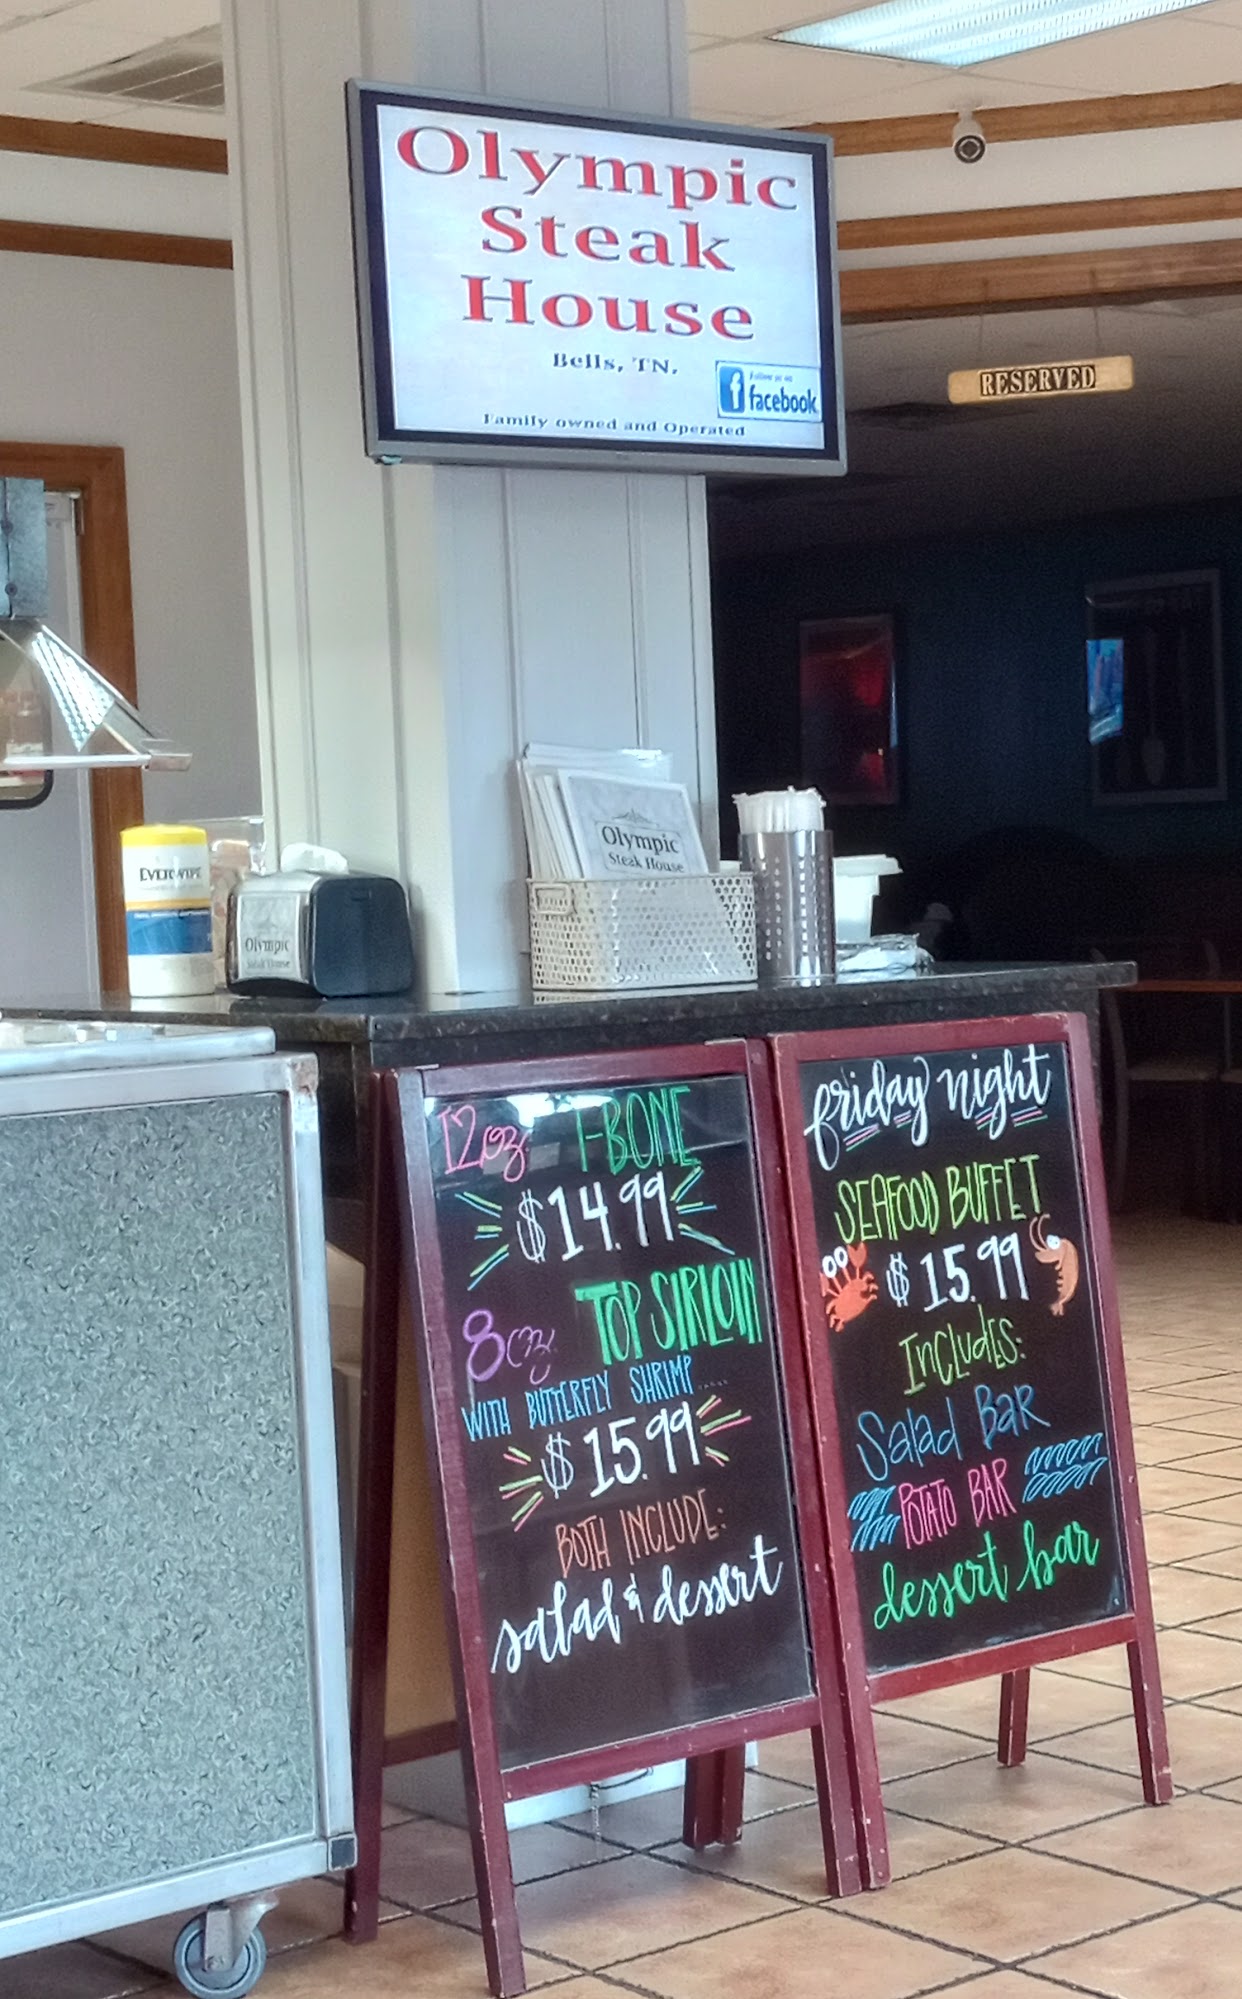 Olympic
Steak
House
Bells, TN.
Follow us on
facebook
Family owned and Operated
RESERVED
EVERWIPE
Olympic
Steak House
Olympic
Steak House
12oz. T-BONE
$14.99
8oz. TOP SIRLOIN
WITH BUTTERFLY SHRIMP.....
$15.99
BOTH INCLUDE:
salad & dessert
friday night
SEAFOOD BUFFET
$15.99
INCLUDES:
Salad BAR
POTATO BAR
dessert bar